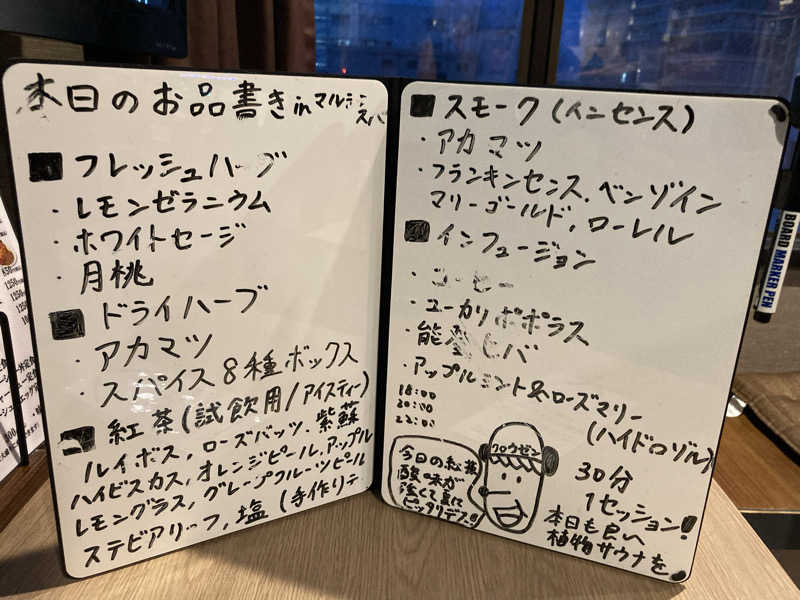 本日のお品書き in マルシンスパ
■ フレッシュハーブ
・レモンゼラニウム
・ホワイトセージ
・月桃
■ ドライハーブ
・アカマツ
・スパイス8種ボックス
■ 紅茶(試飲用/アイスティー)
ルイボス、ローズバッツ、紫蘇
ハイビスカス、オレンジピール、アップル
レモングラス、グレープフルーツピール
ステビアリーフ、塩(手作りテ
■ スモーク(インセンス)
・アカマツ
・フランキンセンス、ベンゾイン
マリーゴールド、ローレル
■ インフュージョン
・コーヒー
・ユーカリポポラス
・能登ヒバ
・アップルミント&ローズマリー
(ハイドロゾル)
18:00
20:00
22:00
今日の紅茶
酸味が
強くて夏に
ピッタリデス!!
クロウゼン
30分
1セッション!
本日も良い
植物サウナを
BOARD MARKER PEN